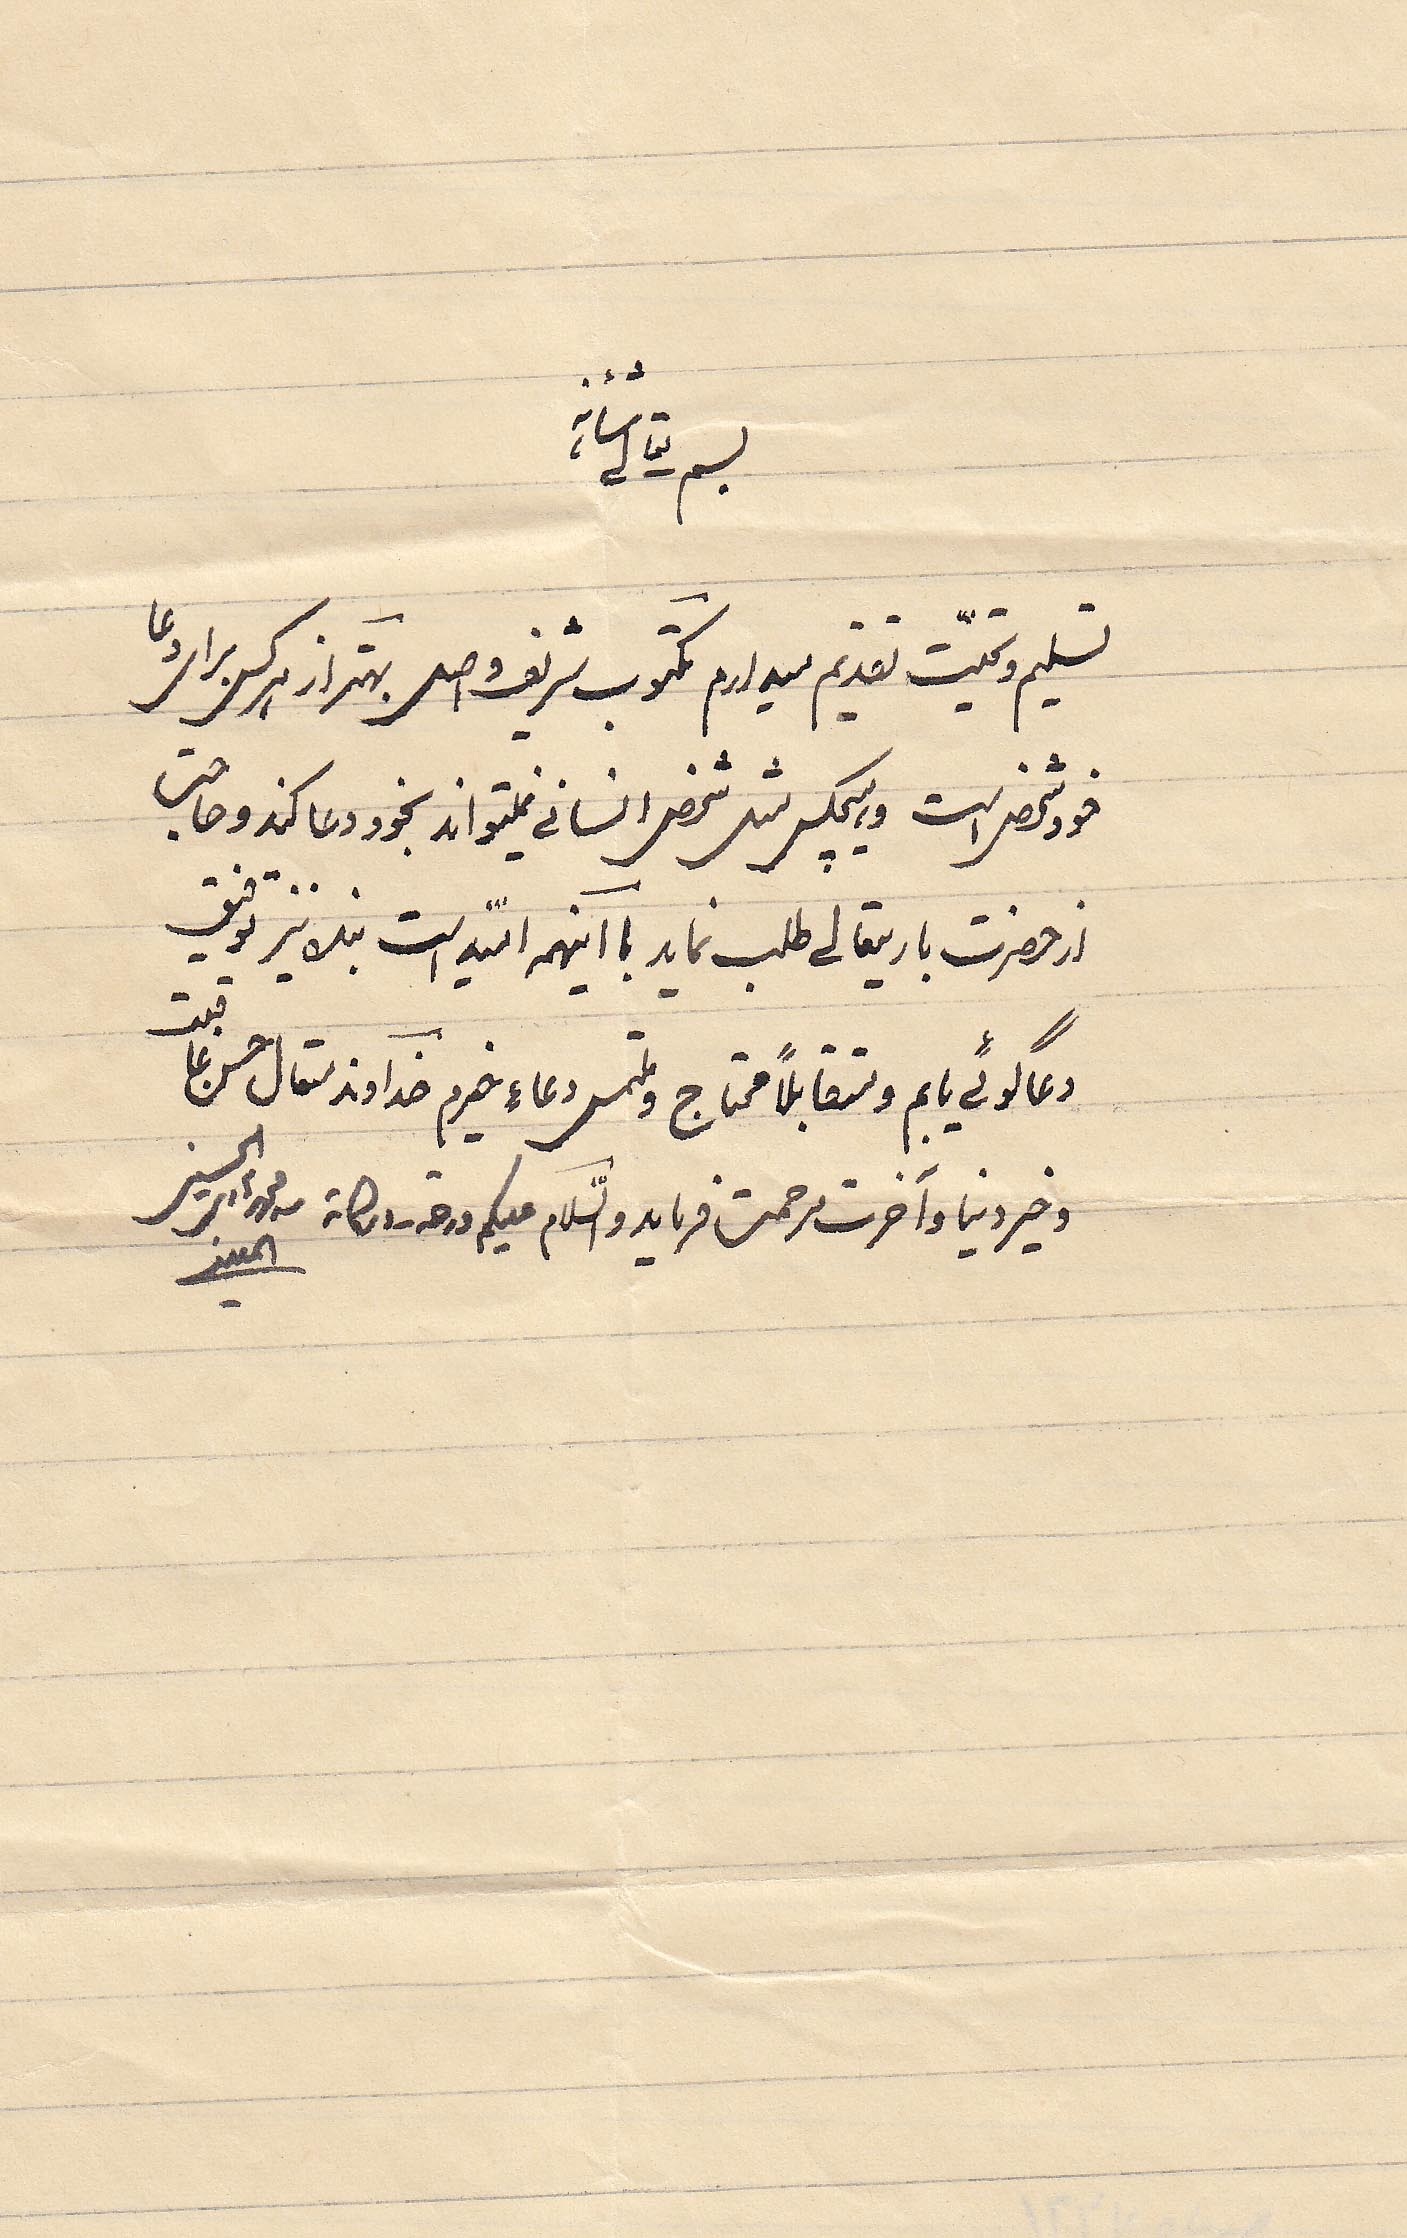 بسمه تعالی شأنه
تسلیم و تحیّت تقدیم میدارم مکتوب شریف واصل بهتر از هر کس برای دعا
خود شخص است و هیچکس مثل شخص انسانی نمیتواند بخود دعا کند و حاجت
از حضرت باریتعالی طلب نماید با اینهمه امّید است بنده نیز توفیق
دعا گوئی یابم و متقابلاً محتاج و ملتمس دعاء خیرم خداوند متعال حسن عاقبت
و خیر دنیا و آخرت مرحمت فرماید والسّلام علیکم ورحمة و برکاته
الحسینی